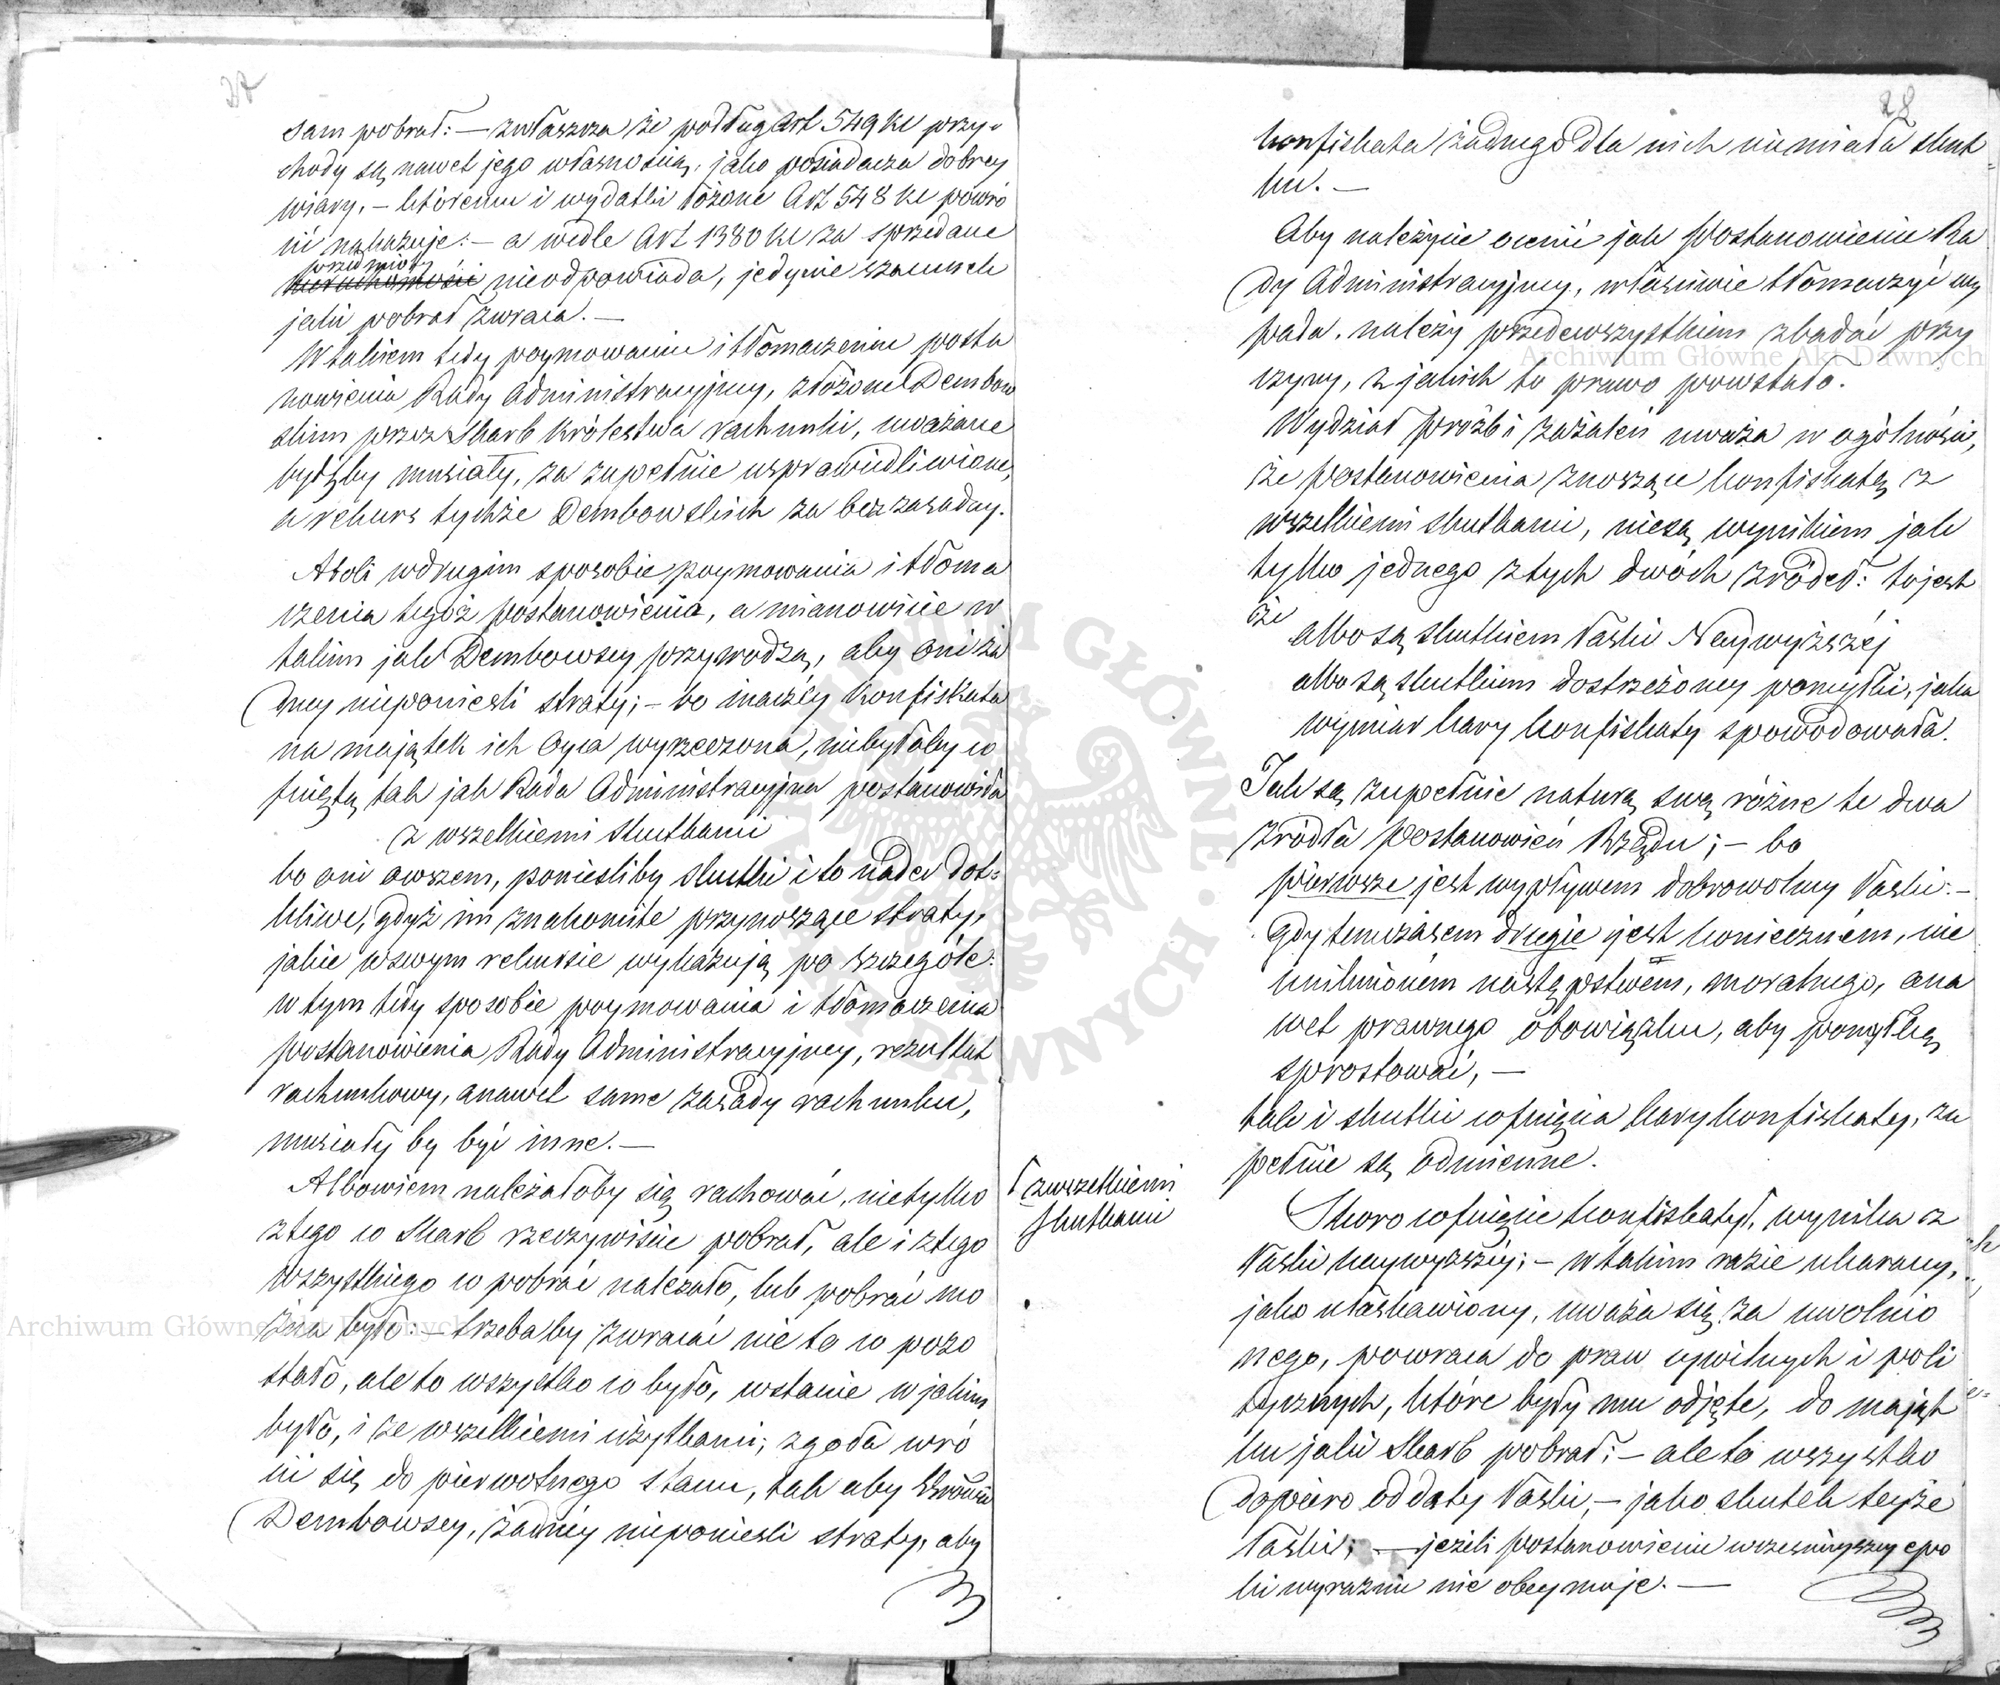 27
sam pobrał: — zwłaszcza że podług Art 549 kc przy-
chody są nawet jego własnością, jako posiadacza dobrey
wiary, — któremu i wydatki łożone Art 548 kc powró
cić nakazuje: — a wedle Art 1380 kc za sprzedane
przedmioty
nieruchomości nieodpowiada, jedynie szacunek
jaki pobrał zwraca. —
W takiem tedy poymowaniu i tłomaczeniu posta
nowienia Rady Administracyjney, złożone Dembow
skim przez Skarb Królestwa rachunki, uważane
bydźby musiały, za zupełnie usprawiedliwione,
a rekurs tychże Dembowskich za bezzasadny.
Atoli w drugim sposobie poymowania i tłoma
czenia tegoż postanowienia, a mianowicie w
takim jak Dembowscy przywodzą, aby oni ża
dney nieponieśli straty; — bo inaczéy Konfiskata
na majątek ich Oyca wyrzeczona, niebyłaby co
fniętą tak jak Rada Administracyjna postanowiła
z wszelkiemi skutkami
bo oni owszem, ponieśliby skutki i to nader dot-
kliwe, gdyż im znakomite przynoszące straty,
jakie w swym rekursie wykazują po szczególe:
w tym tedy sposobie poymowania i tłomaczenia
postanowienia Rady Administracyjney, rezultat
rachunkowy, a nawet same zasady rachunku,
musiały by być inne. —
Albowiem należałoby się rachować, nietylko
z tego co Skarb rzeczywiście pobrał, ale i z tego
wszystkiego co pobrać należało, lub pobrać mo
żna było: — trzebaby zwracać nie to co pozo
stało, ale to wszystko co było, w stanie w jakim
było, i ze wszelkiemi użytkami; zgoła wró
cić się do pierwotnego stanu, tak aby
Dembowscy, żadnéy nieponieśli straty, aby
28
konfiskata żadnego dla nich niemiała skut-
ku. —
Aby należycie ocenić jak Postanowienie Ra
dy Administracyjney, właściwie tłomaczyć wy
pada, należy przedewszystkiem zbadać przy
czyny, z jakich to prawo powstało.
Wydział próźb i zażaleń uważa w ogólności,
że postanowienia znoszące konfiskatę z
wszelkiemi skutkami, niesą wynikiem jak
tylko jednego z tych dwóch źródeł: to jest
że
albo są skutkiem Łaski Naywyższéj
albo są skutkiem dostrzeżoney pomyłki, jaka
wymiar kary konfiskaty spowodowała.
Jak są zupełnie naturą swą różne te dwa
źródła postanowień Rządu; — bo
pierwsze jest wypływem dobrowolney Łaski. —
Gdy tymczasem drugie jest konieczném, nie
uniknioném następstwem, moralnego, a na
wet prawnego obowiązku, aby pomyłkę
sprostować, —
tak i skutki cofnięcia kary konfiskaty, zu
pełnie są odmienne.
z wszelkiemi
skutkami
Skoro cofnięcie konfiskaty, wynika z
Łaski naywyższéy; — w takim razie ukarany,
jako ułaskawiony, uważa się za uwolnio
nego, powraca do praw cywilnych i poli
tycznych, które były mu odjęte, do mająt
ku jaki Skarb pobrał; — ale to wszystko
dopiero od daty Łaski, — jako skutek teyże
Łaski; — jeżeli postanowienie wcześnieyszey epo
ki wyraźnie nie obeymuje. —
Archiwum Główne Akt Dawnych
Archiwum Główne Akt Dawnych
ARCHIWUM GŁÓWNE AKT DAWNYCH